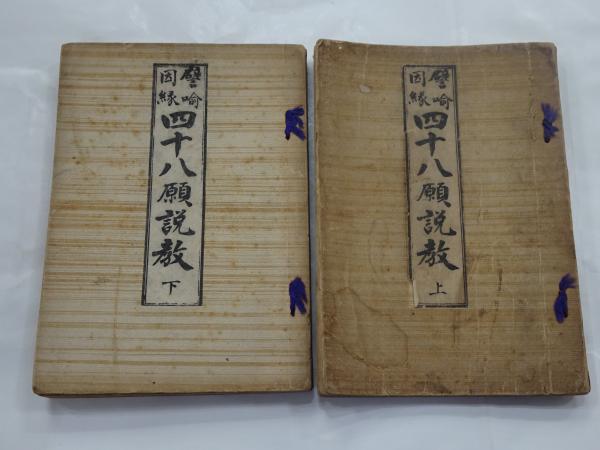 譬喩
因縁
四十八願説教
上
譬喩
因縁
四十八願説教
下